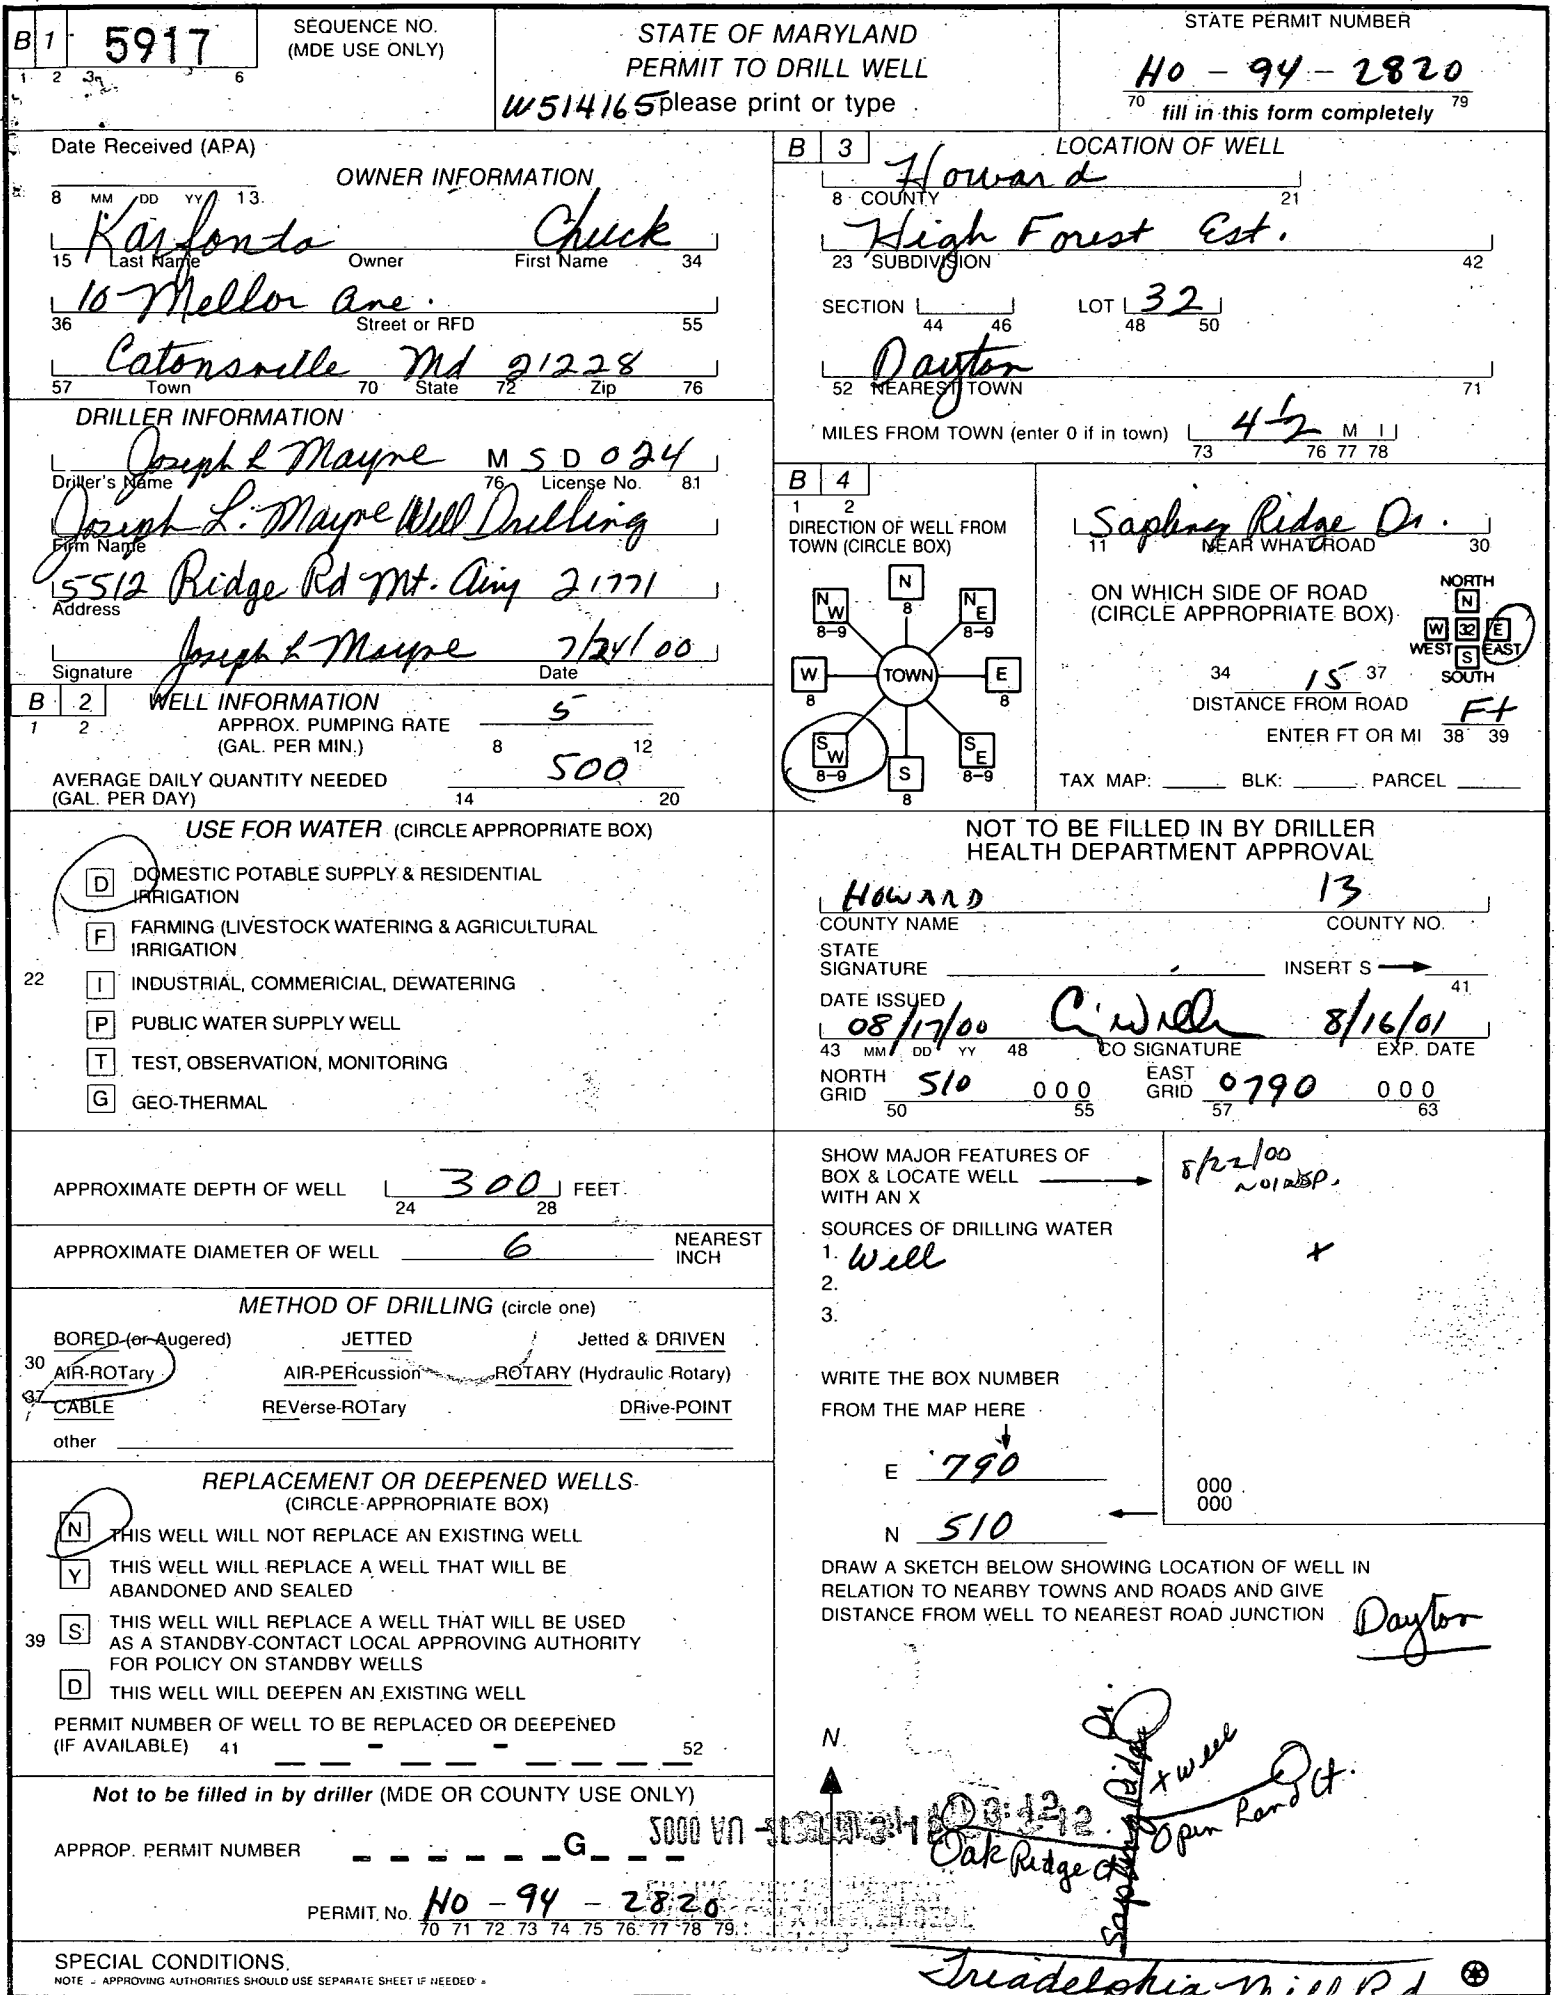 B 1 5917
1 2 3 6
SEQUENCE NO.
(MDE USE ONLY)
STATE OF MARYLAND
PERMIT TO DRILL WELL
W514165 please print or type
STATE PERMIT NUMBER
HO - 94 - 2820
70 79
fill in this form completely
Date Received (APA)
OWNER INFORMATION
8 MM DD YY 13
Karfonta Chuck
15 Last Name Owner First Name 34
10 Mellor Ave.
36 Street or RFD 55
Catonsville Md 21228
57 Town 70 State 72 Zip 76
DRILLER INFORMATION
Joseph L Mayne M S D 024
Driller's Name 76 License No. 81
Joseph L. Mayne Well Drilling
Firm Name
5512 Ridge Rd Mt. Airy 21771
Address
Joseph L Mayne 7/24/00
Signature Date
B 2 WELL INFORMATION
1 2
APPROX. PUMPING RATE
(GAL. PER MIN.) 5
8 12
AVERAGE DAILY QUANTITY NEEDED
(GAL. PER DAY) 500
14 20
USE FOR WATER (CIRCLE APPROPRIATE BOX)
D DOMESTIC POTABLE SUPPLY & RESIDENTIAL
IRRIGATION
F FARMING (LIVESTOCK WATERING & AGRICULTURAL
IRRIGATION
22 I INDUSTRIAL, COMMERICIAL, DEWATERING
P PUBLIC WATER SUPPLY WELL
T TEST, OBSERVATION, MONITORING
G GEO-THERMAL
APPROXIMATE DEPTH OF WELL 300 FEET
24 28
APPROXIMATE DIAMETER OF WELL 6 NEAREST
INCH
METHOD OF DRILLING (circle one)
BORED (or Augered) JETTED Jetted & DRIVEN
30 AIR-ROTary AIR-PERcussion ROTARY (Hydraulic Rotary)
37 CABLE REVerse-ROTary DRive-POINT
other
REPLACEMENT OR DEEPENED WELLS
(CIRCLE APPROPRIATE BOX)
N THIS WELL WILL NOT REPLACE AN EXISTING WELL
Y THIS WELL WILL REPLACE A WELL THAT WILL BE
ABANDONED AND SEALED
39 S THIS WELL WILL REPLACE A WELL THAT WILL BE USED
AS A STANDBY-CONTACT LOCAL APPROVING AUTHORITY
FOR POLICY ON STANDBY WELLS
D THIS WELL WILL DEEPEN AN EXISTING WELL
PERMIT NUMBER OF WELL TO BE REPLACED OR DEEPENED
(IF AVAILABLE) 41 - - 52
Not to be filled in by driller (MDE OR COUNTY USE ONLY)
APPROP. PERMIT NUMBER G
PERMIT No. HO - 94 - 2820
70 71 72 73 74 75 76 77 78 79
SPECIAL CONDITIONS
NOTE - APPROVING AUTHORITIES SHOULD USE SEPARATE SHEET IF NEEDED
B 3 LOCATION OF WELL
Howard
8 COUNTY 21
High Forest Est.
23 SUBDIVISION 42
SECTION LOT 32
44 46 48 50
Dayton
52 NEAREST TOWN 71
MILES FROM TOWN (enter 0 if in town) 4 1/2 M I
73 76 77 78
B 4
1 2
DIRECTION OF WELL FROM
TOWN (CIRCLE BOX)
N
8
NW
8-9
NE
8-9
W
8
TOWN
E
8
SW
8-9
S
8
SE
8-9
Sapling Ridge Dr.
11 NEAR WHAT ROAD 30
ON WHICH SIDE OF ROAD
(CIRCLE APPROPRIATE BOX)
NORTH
N
W 32 E
WEST EAST
S
SOUTH
34 15 37
DISTANCE FROM ROAD
Ft
ENTER FT OR MI 38 39
TAX MAP: BLK: PARCEL
NOT TO BE FILLED IN BY DRILLER
HEALTH DEPARTMENT APPROVAL
HOWARD 13
COUNTY NAME COUNTY NO.
STATE
SIGNATURE INSERT S
41
DATE ISSUED
08/17/00 8/16/01
43 MM DD YY 48 CO SIGNATURE EXP. DATE
NORTH
GRID 510 000
50 55
EAST
GRID 0790 000
57 63
SHOW MAJOR FEATURES OF
BOX & LOCATE WELL
WITH AN X
8/22/00
X
SOURCES OF DRILLING WATER
1. Well
2.
3.
WRITE THE BOX NUMBER
FROM THE MAP HERE
E 790
N 510
000
000
DRAW A SKETCH BELOW SHOWING LOCATION OF WELL IN
RELATION TO NEARBY TOWNS AND ROADS AND GIVE
DISTANCE FROM WELL TO NEAREST ROAD JUNCTION
Dayton
N
Sapling Ridge Dr.
x well
Open Land Ct.
Oak Ridge Ct
Triadelphia Mill Rd